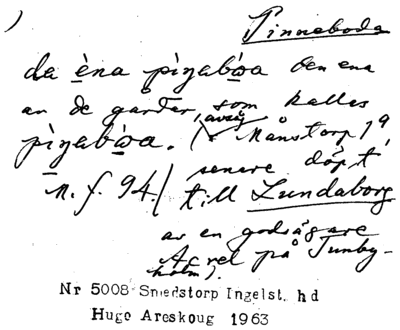 Pinneboda
da èna pìŋabǿa den ena
av de gårdar, som kallas
pìŋabǿa. (avsöndr. Månstorp 19,
senare döpt
n. f. 94.) till Lundaborg
av en godsägare
Acrel på Tunby-
holm).
Nr 5008 Smedstorp Ingelst. hd
Hugo Areskoug 1963